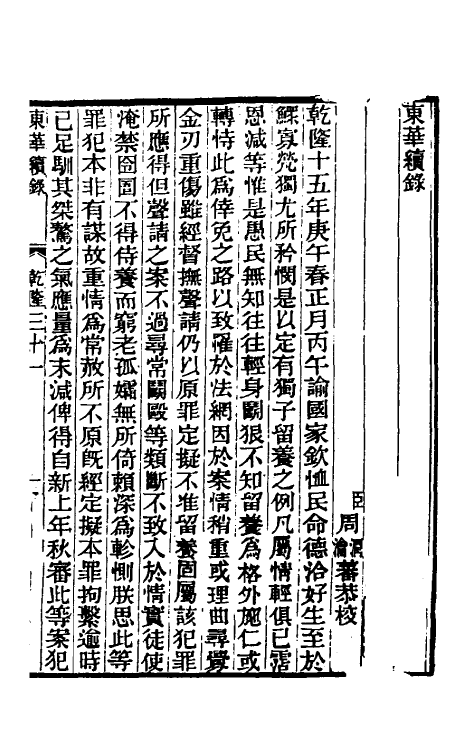 東華續錄
臣周潤蕃
瀹蕃恭校
乾隆十五年庚午春正月丙午諭國家欽恤民命德洽好生至於
鰥寡煢獨尤所矜憫是以定有獨子留養之例凡屬情輕俱已霑
恩減等惟是愚民無知往往輕身鬭狠不知留養為格外施仁或
轉恃此為倖免之路以致罹於法網因於案情稍重或理曲尋釁
金刃重傷雖經督撫聲請仍以原罪定擬不准留養固屬該犯罪
所應得但聲請之案不過尋常鬭毆等類斷不致入於情實徒使
淹禁囹圄不得侍養而窮老孤孀無所倚賴深為軫惻朕思此等
罪犯本非有謀故重情為常赦所不原旣經定擬本罪拘繫逾時
已足馴其桀驁之氣應量為末減俾得自新上年秋審此等案犯
東華續錄
乾隆三十一
一